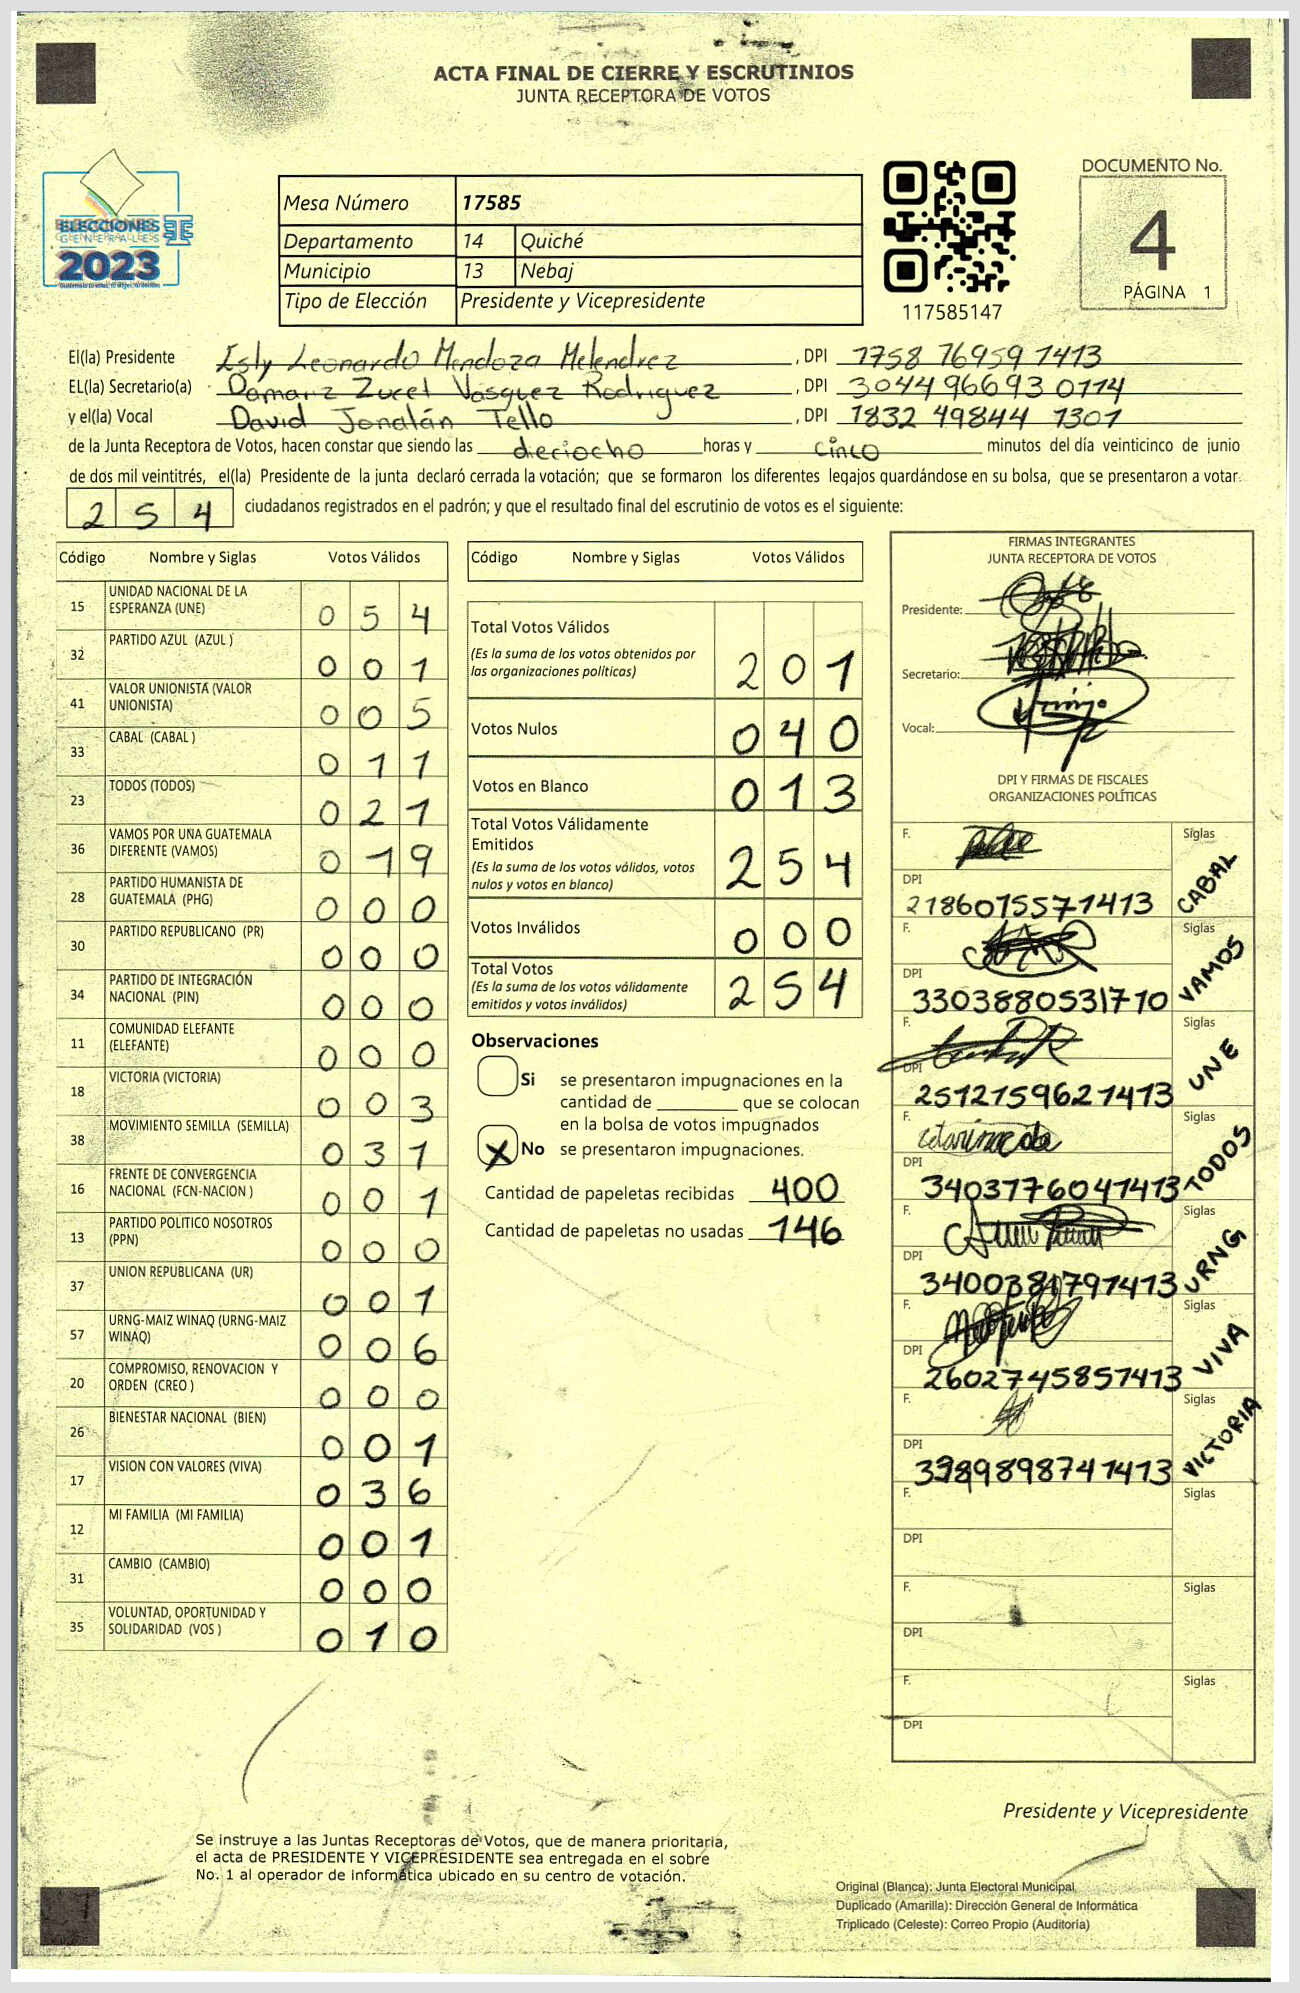 ACTA FINAL DE CIERRE Y ESCRUTINIOS
JUNTA RECEPTORA DE VOTOS
ELECCIONES
GENERALES
2023
Mesa Número 17585
Departamento 14 Quiché
Municipio 13 Nebaj
Tipo de Elección Presidente y Vicepresidente
117585147
DOCUMENTO No.
4
PÁGINA 1
El(la) Presidente Esly Leonardo Mendoza Melendrez , DPI 1758 76959 1413
EL(la) Secretario(a) Damariz Zucel Vásquez Rodriguez , DPI 3044 96693 0114
y el(la) Vocal David Jonalán Tello , DPI 1832 49844 1301
de la Junta Receptora de Votos, hacen constar que siendo las dieciocho horas y cinco minutos del día veinticinco de junio
de dos mil veintitrés, el(la) Presidente de la junta declaró cerrada la votación; que se formaron los diferentes legajos guardándose en su bolsa, que se presentaron a votar
254 ciudadanos registrados en el padrón; y que el resultado final del escrutinio de votos es el siguiente:
Código Nombre y Siglas Votos Válidos
15 UNIDAD NACIONAL DE LA ESPERANZA (UNE) 054
32 PARTIDO AZUL (AZUL ) 001
41 VALOR UNIONISTA (VALOR UNIONISTA) 005
33 CABAL (CABAL ) 011
23 TODOS (TODOS) 021
36 VAMOS POR UNA GUATEMALA DIFERENTE (VAMOS) 019
28 PARTIDO HUMANISTA DE GUATEMALA (PHG) 000
30 PARTIDO REPUBLICANO (PR) 000
34 PARTIDO DE INTEGRACIÓN NACIONAL (PIN) 000
11 COMUNIDAD ELEFANTE (ELEFANTE) 000
18 VICTORIA (VICTORIA) 003
38 MOVIMIENTO SEMILLA (SEMILLA) 031
16 FRENTE DE CONVERGENCIA NACIONAL (FCN-NACION ) 001
13 PARTIDO POLITICO NOSOTROS (PPN) 000
37 UNION REPUBLICANA (UR) 001
57 URNG-MAIZ WINAQ (URNG-MAIZ WINAQ) 006
20 COMPROMISO, RENOVACION Y ORDEN (CREO ) 000
26 BIENESTAR NACIONAL (BIEN) 001
17 VISION CON VALORES (VIVA) 036
12 MI FAMILIA (MI FAMILIA) 001
31 CAMBIO (CAMBIO) 000
35 VOLUNTAD, OPORTUNIDAD Y SOLIDARIDAD (VOS ) 010
Código Nombre y Siglas Votos Válidos
Total Votos Válidos 201
(Es la suma de los votos obtenidos por
las organizaciones politicas)
Votos Nulos 040
Votos en Blanco 013
Total Votos Válidamente
Emitidos 254
(Es la suma de los votos válidos, votos
nulos y votos en blanco)
Votos Inválidos 000
Total Votos 254
(Es la suma de los votos válidamente
emitidos y votos inválidos)
Observaciones
Si se presentaron impugnaciones en la
cantidad de ________ que se colocan
en la bolsa de votos impugnados
X No se presentaron impugnaciones.
Cantidad de papeletas recibidas 400
Cantidad de papeletas no usadas 146
FIRMAS INTEGRANTES
JUNTA RECEPTORA DE VOTOS
Presidente:
Secretario:
Vocal:
DPI Y FIRMAS DE FISCALES
ORGANIZACIONES POLÍTICAS
F. Siglas
DPI 2186015571413 CABAL
F. Siglas
DPI 3303880531710 VAMOS
F. Siglas
DPI 2512159621413 UNE
F. Siglas
DPI 3403776041413 TODOS
F. Siglas
DPI 3400381791413 URNG
F. Siglas
DPI 2602745851413 VIVA
F. Siglas
DPI VICTORIA
F. Siglas
DPI
F. Siglas
DPI
F. Siglas
DPI
Presidente y Vicepresidente
Se instruye a las Juntas Receptoras de Votos, que de manera prioritaria,
el acta de PRESIDENTE Y VICEPRESIDENTE sea entregada en el sobre
No. 1 al operador de informática ubicado en su centro de votación.
Original (Blanca): Junta Electoral Municipal
Duplicado (Amarilla): Dirección General de Informática
Triplicado (Celeste): Correo Propio (Auditoría)